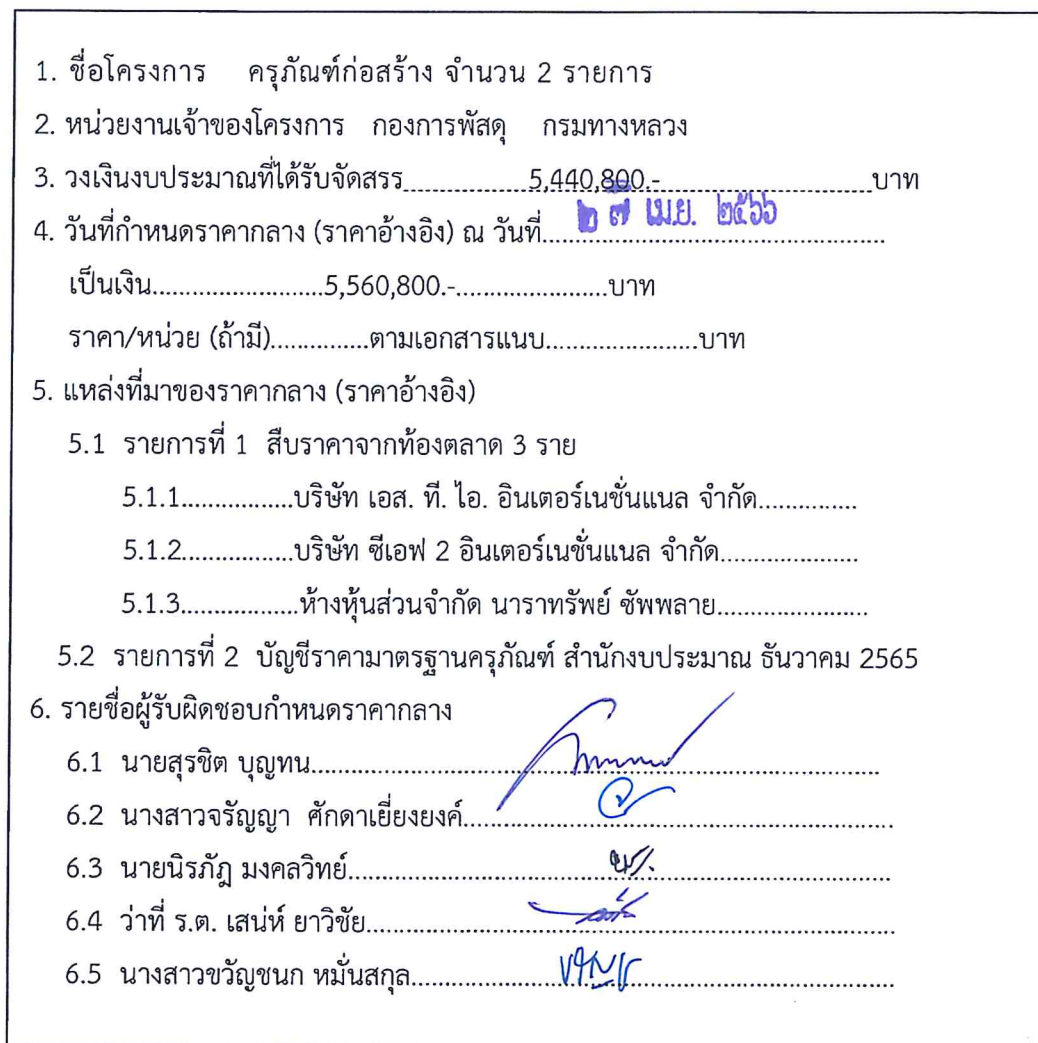 1. ชื่อโครงการ ครุภัณฑ์ก่อสร้าง จำนวน 2 รายการ
2. หน่วยงานเจ้าของโครงการ กองการพัสดุ กรมทางหลวง
3. วงเงินงบประมาณที่ได้รับจัดสรร....................5,440,800.-....................บาท
4. วันที่กำหนดราคากลาง (ราคาอ้างอิง) ณ วันที่....๒๗ เม.ย. ๒๕๖๖....
เป็นเงิน.........................5,560,800.-......................บาท
ราคา/หน่วย (ถ้ามี)..............ตามเอกสารแนบ......................บาท
5. แหล่งที่มาของราคากลาง (ราคาอ้างอิง)
5.1 รายการที่ 1 สืบราคาจากท้องตลาด 3 ราย
5.1.1................บริษัท เอส. ที. ไอ. อินเตอร์เนชั่นแนล จำกัด...............
5.1.2................บริษัท ซีเอฟ 2 อินเตอร์เนชั่นแนล จำกัด....................
5.1.3.................ห้างหุ้นส่วนจำกัด นาราทรัพย์ ซัพพลาย......................
5.2 รายการที่ 2 บัญชีราคามาตรฐานครุภัณฑ์ สำนักงบประมาณ ธันวาคม 2565
6. รายชื่อผู้รับผิดชอบกำหนดราคากลาง
6.1 นายสุรชิต บุญทน....................
6.2 นางสาวจรัญญา ศักดาเยี่ยงยงค์....................
6.3 นายนิรภัฎ มงคลวิทย์....................
6.4 ว่าที่ ร.ต. เสน่ห์ ยาวิชัย....................
6.5 นางสาวขวัญชนก หมั่นสกุล....................